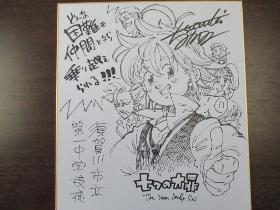 どんな
困難も
仲間となら
乗り越え
られる!!!
須賀川市立
第一中学校様
七つの大罪
The Seven Deadly Sins